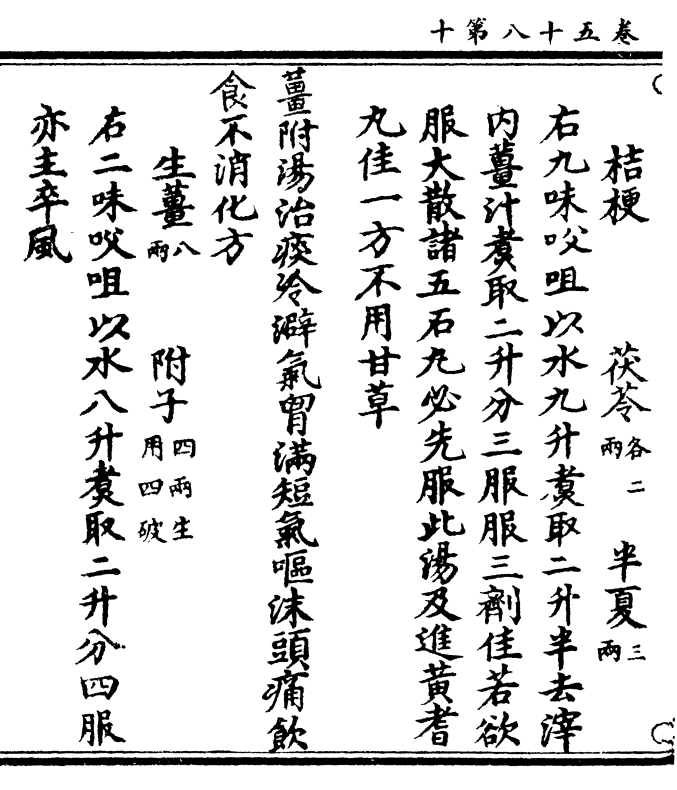 卷五十八第十
桔梗　茯苓各二兩　半夏三兩
右九味㕮咀以水九升煑取二升半去滓
内薑汁煑取二升分三服服三劑佳若欲
服大散諸五石丸必先服此湯及進黃耆
丸佳一方不用甘草
薑附湯治痰冷澼氣胷滿短氣嘔沫頭痛飲
食不消化方
生薑八兩　附子四兩生用四破
右二味㕮咀以水八升煑取二升分四服
亦主卒風